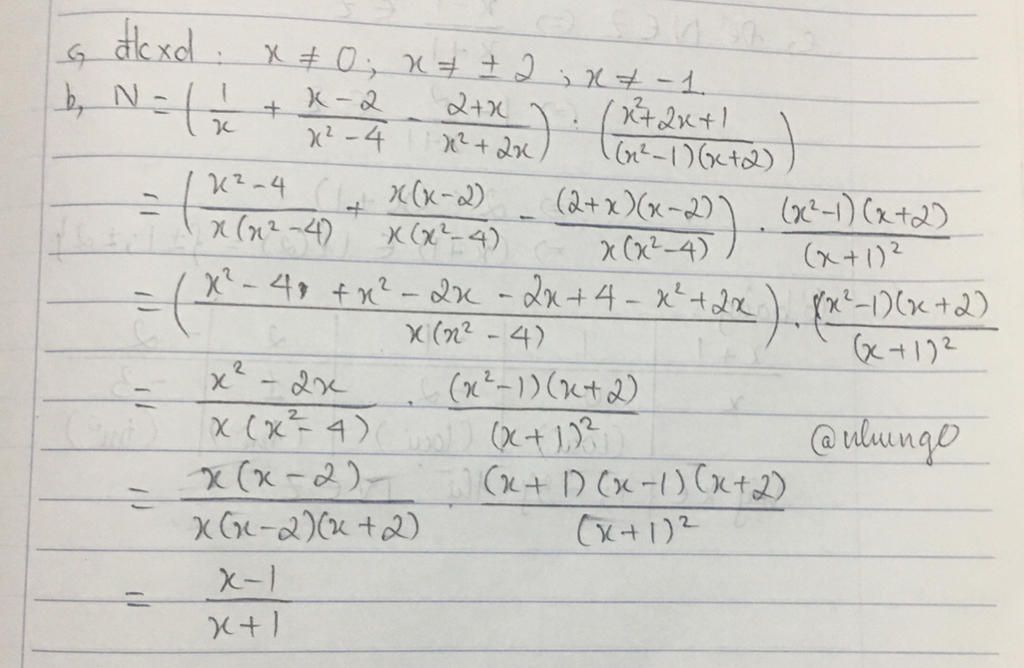 a, đkxđ : x ≠ 0; x ≠ ± 2 ; x ≠ -1.
b, N = (1/x + (x-2)/(x²-4) - (2+x)/(x²+2x)) : ((x²+2x+1)/((x²-1)(x+2)))
= ((x²-4)/(x(x²-4)) + (x(x-2))/(x(x²-4)) - ((2+x)(x-2))/(x(x²-4))) . ((x²-1)(x+2))/((x+1)²)
= ((x²-4+x²-2x-2x+4-x²+2x)/(x(x²-4))) . ((x²-1)(x+2))/((x+1)²)
= (x²-2x)/(x(x²-4)) . ((x²-1)(x+2))/((x+1)²)
= (x(x-2))/(x(x-2)(x+2)) . ((x+1)(x-1)(x+2))/((x+1)²)
= (x-1)/(x+1)